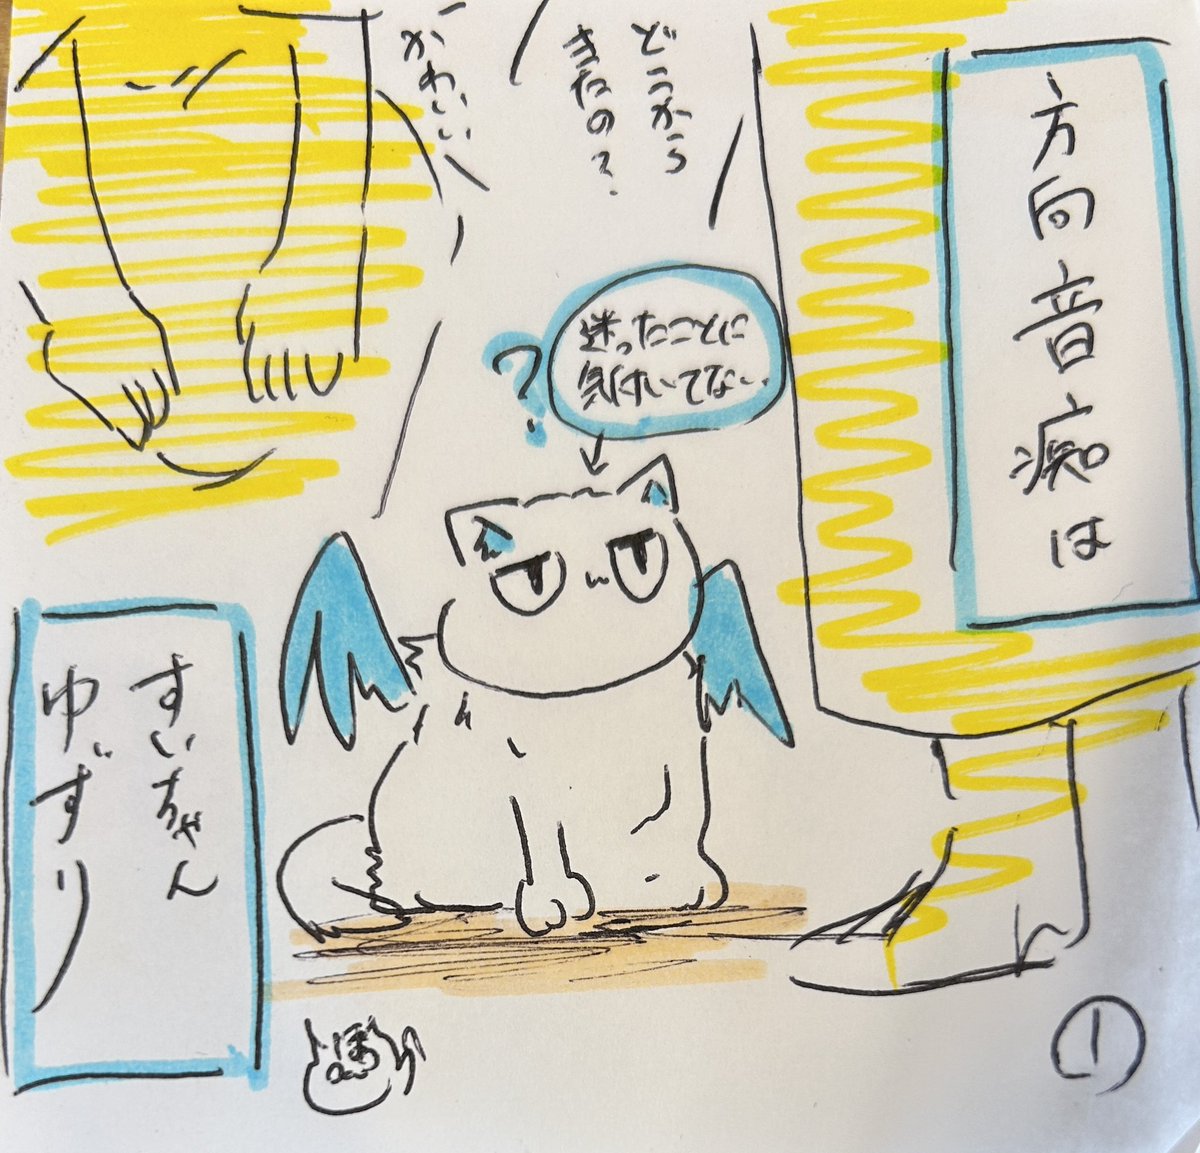 方向音痴は
どこから
きたの?
かわいい〜
?
迷ったことに
気付いてない
すいちゃん
ゆずり
①